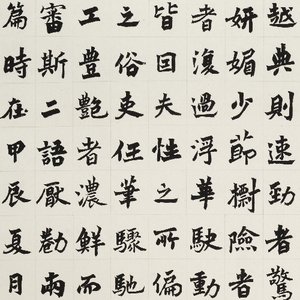 越典則速勁者驚
妍媚少節險者
者復過浮華駃動
皆囙夫性之所偏
之俗吏任筆驟馳
工豊艷者濃鮮而
審斯二語厭勸兩
篇時在甲辰夏月